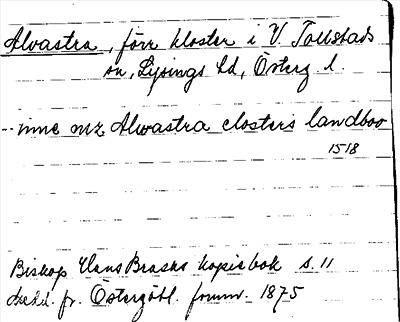 Alvastra, förr kloster i V. Tollstads
sn, Lysings hd, Österg. l.
-- inne mz Alwastra closters landboo
1518
Biskop Hans Brasks kopiebok s. 11
fr. Östergötl. fornm. 1875